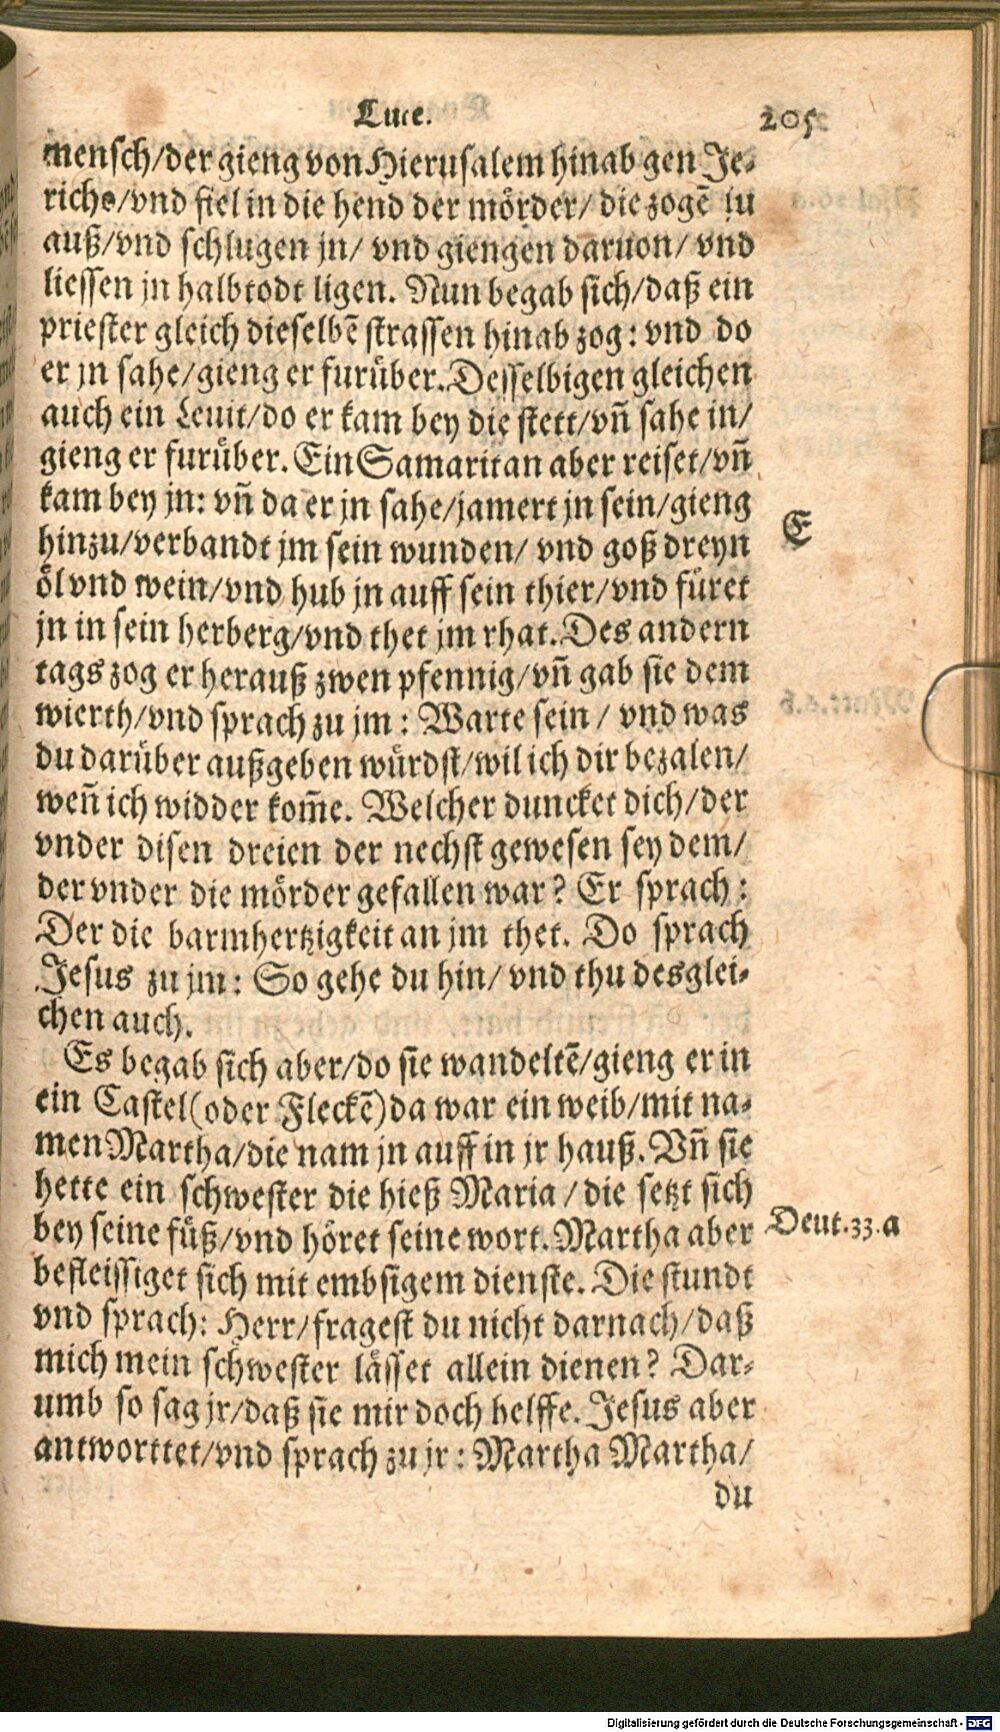 Luce. 205
mensch/der gieng von Hierusalem hinab gen Je-
richo/vnd fiel in die hend der mörder/ die zogẽ in
auß/vnd schlugen jn/ vnd giengen daruon/ vnd
liessen jn halbtodt ligen. Nun begab sich/daß ein
priester gleich dieselbẽ strassen hinab zog: vnd do
er jn sahe/gieng er furüber. Desselbigen gleichen
auch ein Leuit/do er kam bey die stett/vñ sahe in/
gieng er furüber. Ein Samaritan aber reiset/vñ
kam bey jn: vñ da er jn sahe/jamert jn sein/gieng
E
hinzu/verbandt jm sein wunden/ vnd goß dreyn
öl vnd wein/vnd hub jn auff sein thier/vnd füret
jn in sein herberg/vnd thet jm rhat. Des andern
tags zog er herauß zwen pfennig/vñ gab sie dem
wierth/vnd sprach zu jm: Warte sein/ vnd was
du darüber außgeben würdst/wil ich dir bezalen/
weñ ich widder kom̃e. Welcher duncket dich/der
vnder disen dreien der nechst gewesen sey dem/
der vnder die mörder gefallen war? Er sprach:
Der die barmhertzigkeit an jm thet. Do sprach
Jesus zu jm: So gehe du hin/ vnd thu desglei-
chen auch.
Es begab sich aber/do sie wandeltẽ/gieng er in
ein Castel(oder Fleckẽ)da war ein weib/mit na-
men Martha/die nam jn auff in jr hauß. Vñ sie
hette ein schwester die hieß Maria/die setzt sich
bey seine füß/vnd höret seine wort. Martha aber
Deut.33.a
befleissiget sich mit embsigem dienste. Die stundt
vnd sprach: Herr/fragest du nicht darnach/daß
mich mein schwester lässet allein dienen? Dar-
umb so sag jr/daß sie mir doch helffe. Jesus aber
antworttet/vnd sprach zu jr: Martha Martha/
du
Digitalisierung gefördert durch die Deutsche Forschungsgemeinschaft - DFG